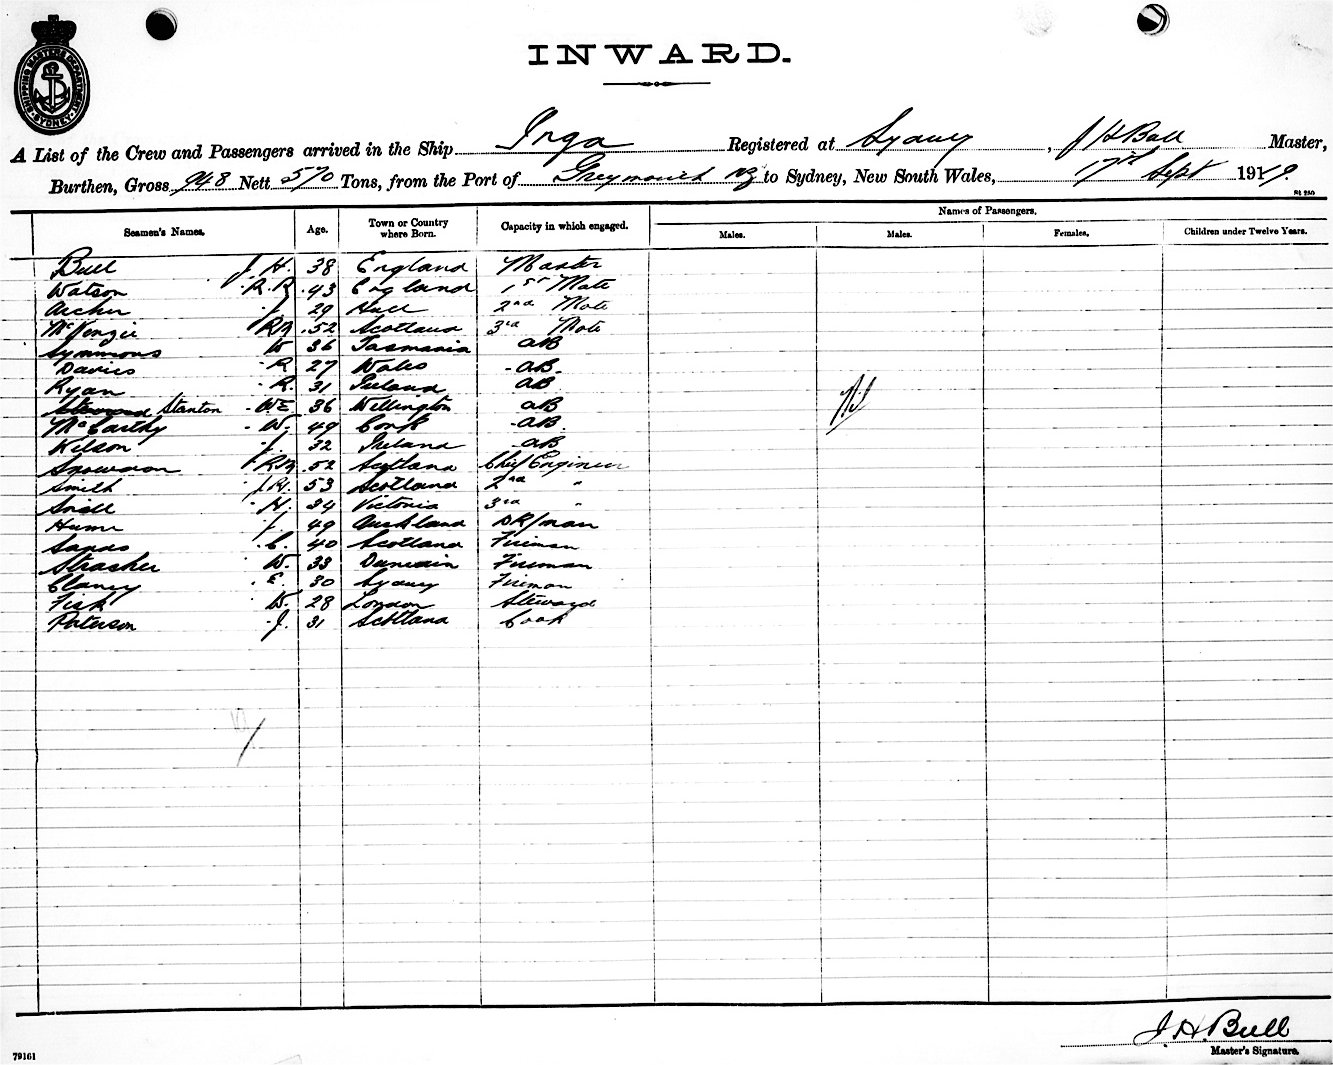 SHIPPING MASTER'S DEPARTMENT SYDNEY
INWARD.
A List of the Crew and Passengers arrived in the Ship Inga Registered at Sydney, J H Bull Master,
Burthen, Gross 948 Nett 570 Tons, from the Port of Greymouth NZ to Sydney, New South Wales, 17th Sept 1919.
St 250
Seamen's Names. Age. Town or Country where Born. Capacity in which engaged. Names of Passengers.
Males. Males. Females. Children under Twelve Years.
Bull J. H. 38 England Master
Watson R. R. 43 England 1st Mate
Archer J. 29 Hull 2nd Mate
McKenzie 52 Scotland 3rd Mate
Symmons W 36 Tasmania AB
Davies R 27 Wales AB.
Ryan R. 31 Ireland AB
Stanton WE 36 Wellington AB
McCarthy W. 49 Cork AB.
Kelson J. 32 Ireland AB
Snowdon 52 Scotland Chief Engineer
Smith J. H. 53 Scotland 2nd "
Snell H. 34 Victoria 3rd "
Hume J. 49 Auckland DK/man
Sands C. 40 Scotland Fireman
Strasher W. 33 Dunedin Fireman
Clancy E. 30 Sydney Fireman
Fisk W. 28 London Steward
Paterson J. 31 Scotland Cook
Nil
J. H. Bull
Master's Signature.
79161